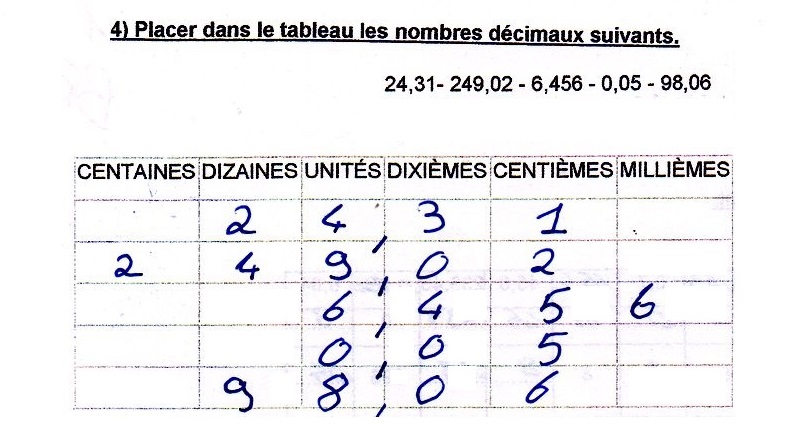 4) Placer dans le tableau les nombres décimaux suivants.
24,31- 249,02 - 6,456 - 0,05 - 98,06
CENTAINES DIZAINES UNITÉS DIXIÈMES CENTIÈMES MILLIÈMES
2 4 , 3 1
2 4 9 , 0 2
6 , 4 5 6
0 , 0 5
9 8 , 0 6